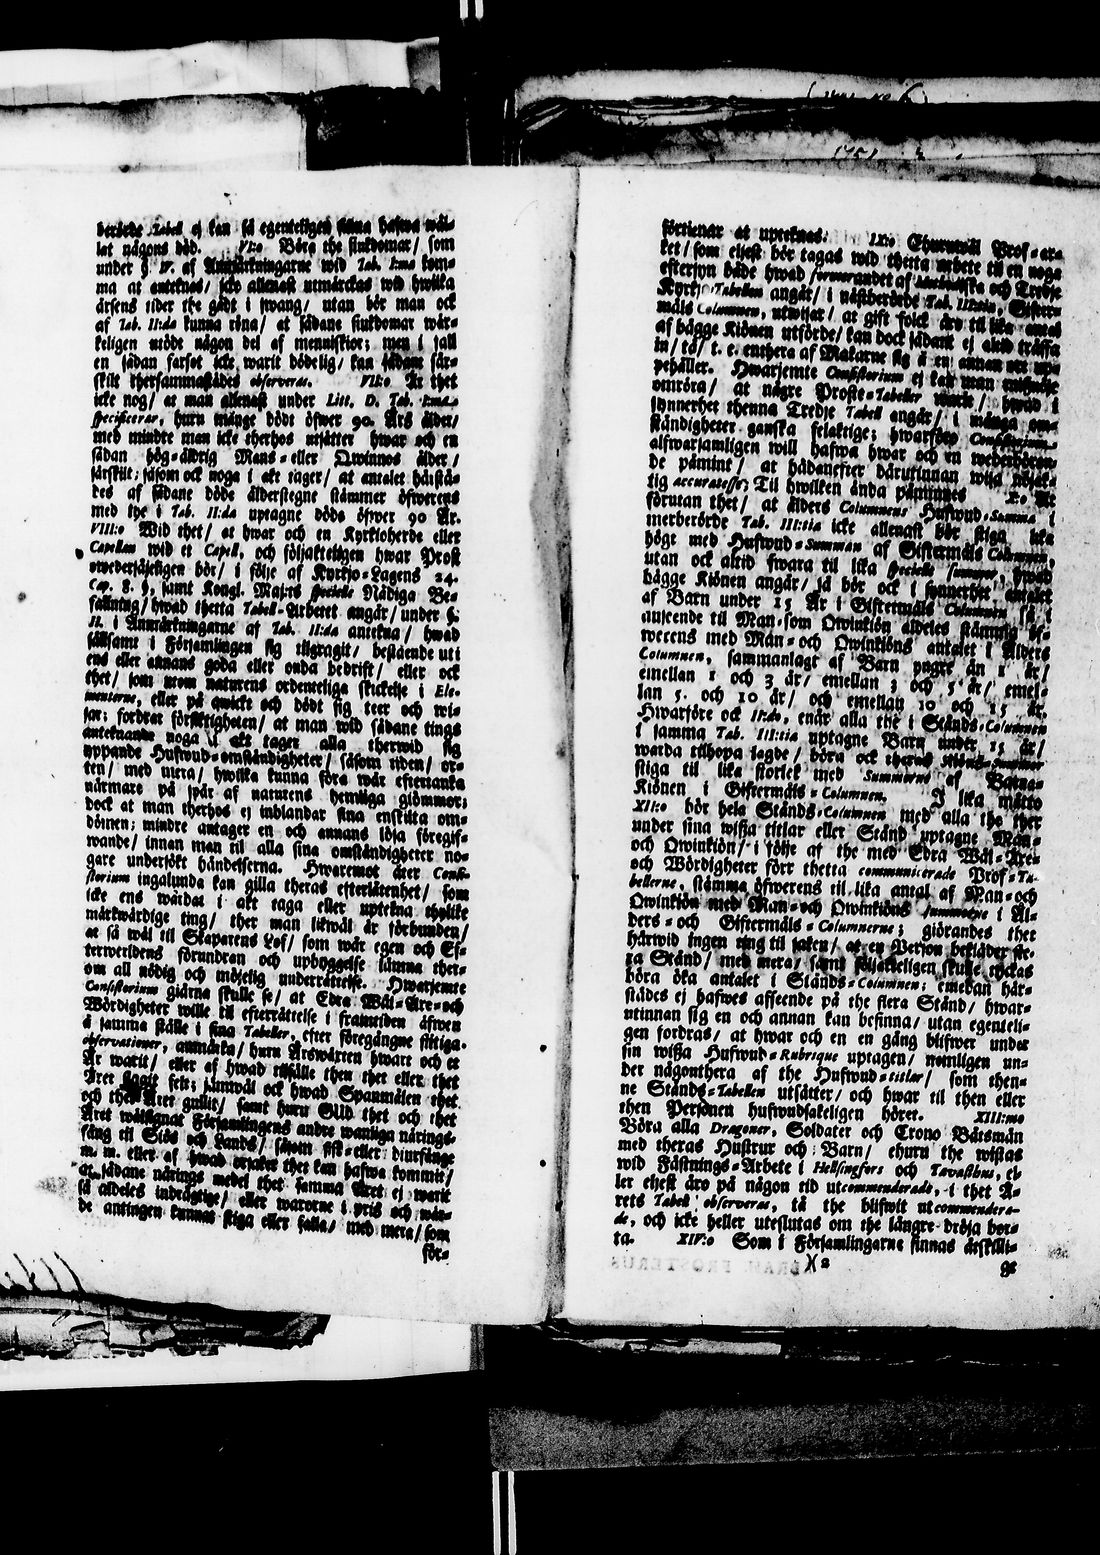 berörde Tabell ej kan så egenteligen sina hafwa wål-
lat någons död. VI:o Böra the siukdomar/ som
under §. IV. af Anmärkningarne wid Tab. I:ma kom-
ma at anteknas/ icke allenast utmärckas wid hwilka
årsens tider the gådt i swang/ utan bör man ock
af Tab. II:da kunna röna/ at sådane siukdomar wär-
keligen mödt någon del af menniskior; men i fall
en sådan farsot icke warit dödelig/ kan sådant sär-
skilt thersammastädes observeras. VII:o Är thet
icke nog/ at man allenast under Litt. D. Tab. I:ma
specificerar, huru månge dödt öfwer 90. Års ålder/
med mindre man icke therhos utsätter hwar och en
sådan hög-åldrig Mans- eller Qwinnos ålder/
särskilt; såsom ock noga i akt tager/ at antalet härstä-
des af sådane döde ålderstegne stämmer öfwerens
med the i Tab. II:da uptagne döde öfwer 90 År.
VIII:o Wid thet/ at hwar och en Kyrkioherde eller
Capellan wid et Capell, och följakteligen hwar Prost
owedersäjeligen bör/ i följe af Kyrkjo-Lagens 24.
Cap. 8. §, samt Kongl. Maj:ts specielle Nådiga Be-
fallning/ hwad thetta Tabell-Arbetet angår/ under §.
II. i Anmärkningarne af Tab. II:da antekna/ hwad
sällsamt i Församlingen sig tilgragit/ bestående uti
ens eller annans goda eller onda bedrift/ eller ock
thet/ som utom naturens ordenteliga skickelse i Ele-
menterne, eller på qwicke och dödt sig teer och wi-
sar; fordrar försiktigheten/ at man wid sådane tings
anteknande noga i akt tager alla therwid sig
yppande Hufwud-omständigheter/ såsom tiden/ or-
ten/ med mera/ hwilka kunna föra wår eftertanka
närmare på spår af naturens hemliga giömmor;
dock at man therhos ej inblandar sina enskilta om-
dömen; mindre antager en och annans lösa föregif-
wande/ innan man til alla sina omständigheter no-
gare undersökt händelserna. Hwaremot åter Consi-
storium ingalunda kan gilla theras efterlåtenhet/ som
icke ens wårdat i akt taga eller uptekna thylike
märkwärdige ting/ ther man likwäl är förbunden/
at så wäl til Skaparens Lof/ som wår egen och Ef-
terwerldens förundran och upbyggelse lämna ther-
om all nödig och möjelig underrättelse. Hwarjemte
Consistorium giärna skulle se/ at Edra Wäl-Äre- och
Wördigheter wille til efterrättelse i framtiden äfwen
å samma ställe i sina Tabeller, efter föregångne flitiga
observationer, anmärka/ huru Årswäxten hwart och et
År warit/ eller af hwad tilfälle then thet eller thet
Året slagit felt; jämwäl ock hwad Spanmålen thet
och thet Året gullit/ samt huru GUD thet och thet
Året wälsignat Församlingens andre wanliga närings-
fång til Siös och Lands/ såsom fisk- eller diurfänge
m. m. eller af hwad orsaker thet kan hafwa kommit/
at sådane närings medel thet samma Året ej warit
så aldeles indrägtige/ eller warorne i pris och wär-
de antingen kunnat stiga eller falla/ med mera/ som
för-
förtienar at upteknas. IX:o Ehuruwäl Prof-ar-
ket/ som eljest bör tagas wid thetta arbete til en noga
eftersyn både hwad formerandet af Märkeliska och Tredje
Kyrkjo-Tabellen angår/ i nästberörde Tab. III:tia, Gifter-
måls Columnen, utwisar/ at gift folck äro til lika antal
af bägge Kiönen utförde/ kan dock sådant ej altid träffa
in/ tå/ t. e. enthera af Makarne sig å en annan ort up-
pehåller. Hwarjemte Consistorium ej kan man
omröra/ at någre Proste-Tabeller warit/ hwad i
synnerhet thenna Tredje Tabell angår/ i många om-
ständigheter ganska felaktige; hwarföre Consistorium
alfwarsamligen will hafwa hwar och en wederböran-
de påmint/ at hädanefter härutinnan wisa nöjak-
tig accuratesse; Til hwilken ända påminnes X:o At
förutan thet/ at ålders Columnens Hufwud-Summa i
merberörde Tab. III:tia icke allenast bör stiga lika
högt med Hufwud-Summan af Giftermåls Columnen,
utan ock altid swara til lika specielle summor, hwad
bägge Kiönen angår/ så bör ock i synnerhet antalet
af Barn under 15 År i Giftermåls Columnen så i
anseende til Man- som Qwinkiön aldeles stämma öf-
werens med Man- och Qwinkiöns antalet i Ålders
Columnen, sammanlagt af Barn yngre än 1 år/
emellan 1 och 3 år/ emellan 3 och 5 år/ emel-
lan 5. och 10 år/ och emellan 10 och 15 år.
Hwarföre ock II:do, enär alla the i Stånds-Columnen
i samma Tab. III:tia uptagne Barn under 15 år/
warda tilhopa lagde/ böra ock theras Kiöns-Summor
stiga til lika storlek med Summorne af Barna-
Kiönen i Giftermåls-Columnen. I lika måtto
XI:o bör hela Stånds-Columnen med alla the ther
under sina wissa titlar eller Stånd uptagne Man-
och Qwinkiön/ i följe af the med Edra Wäl-Äre-
och Wördigheter förr thetta communicerade Prof-Ta-
bellerne, stämma öfwerens til lika antal af Man- och
Qwinkiön med Man- och Qwinkiöns Summorne i Ål-
ders- och Giftermåls-Columnerne; giörandes ther
härwid ingen ting til saken/ at en Person bekläder fle-
ra Stånd/ med mera/ samt följakteligen skulle tyckas
böra öka antalet i Stånds-Columnen; emedan här-
städes ej hafwes afseende på the flera Stånd/ hwar-
utinnan sig en och annan kan befinna/ utan egenteli-
gen fordras/ at hwar och en en gång blifwer under
sin wissa Hufwud-Rubrique uptagen/ nemligen un-
der någonthera af the Hufwud-titlar/ som then-
ne Stånds-Tabellen utsätter/ och hwar til then eller
then Personen hufwudsakeligen höret. XIII:mo
Böra alla Dragoner, Soldater och Crono Båtsmän
med theras Hustrur och Barn/ ehuru the wistas
wid Fästnings-Arbete i Helsingfors och Tavastehus, el-
ler eljest äro på någon tid utcommenderade, i thet Å-
rets Tabell observeras, tå the blifwit utcommendera-
de, och icke heller uteslutas om the längre dröja bor-
ta. XIV:o Som i Församlingarne finnas åtskilli-
)( 2 ge